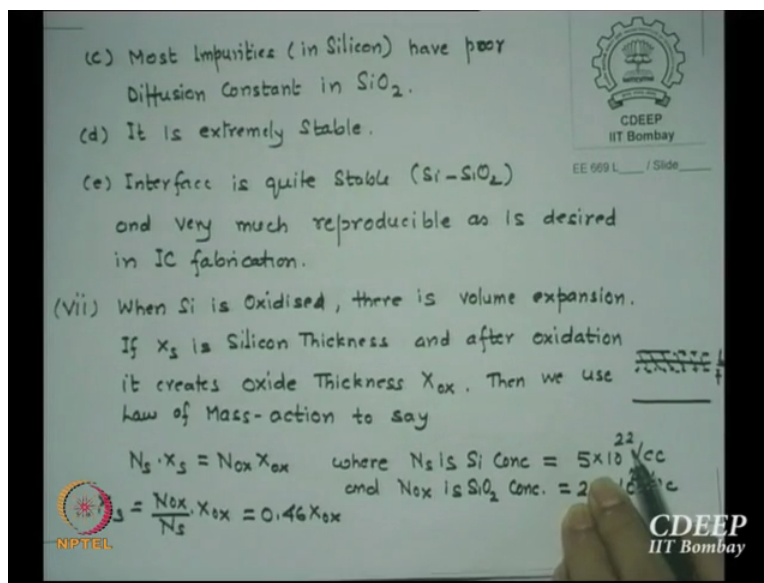 (c) Most Impurities (in Silicon) have poor
Diffusion Constant in SiO₂.
(d) It Is extremely Stable.
(e) Interface is quite Stable (Si-SiO₂)
and very much reproducible as is desired
in IC fabrication.
(vii) When Si is Oxidised, there is volume expansion.
If Xs is Silicon Thickness and after oxidation
it creates oxide Thickness Xox. Then we use
Law of Mass-action to say
Ns.Xs = Nox Xox where Ns is Si Conc = 5×10²²/cc
and Nox is SiO₂ Conc. = 2
Xs = Nox/Ns . Xox = 0.46 Xox
CDEEP
IIT Bombay
EE 669 L___ / Slide___
NPTEL
CDEEP
IIT Bombay